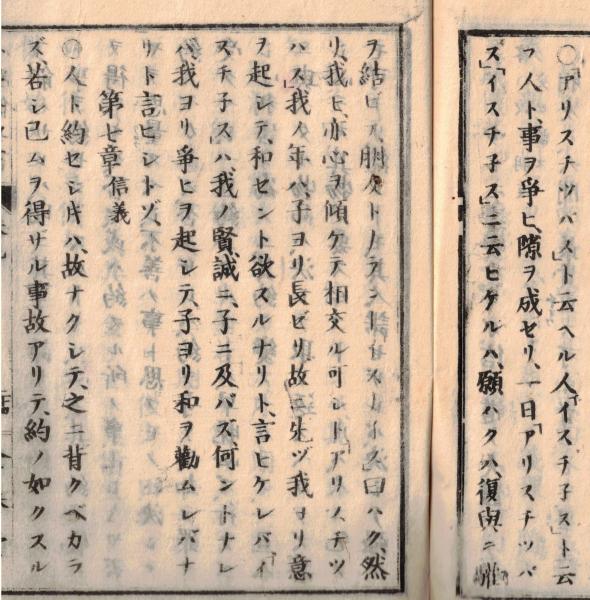 ○「アリスチツパス」ト云ヘル人、「イスチ子スト云
フ人ト、事ヲ爭ヒ、隙ヲ成セリ、一日「アリスチツパ
ス」「イスチ子ス」ニ云ヒケルハ、願ハクハ、復與ニ
ヲ結ビテ朋友ト曰ハク、然
リ、我ヒ亦心ヲ傾ケテ相交ル可シト「アリスチツ
パス」我ノ年ハ、子ヨリ長ゼリ故ニ先ヅ我ヨリ意
ヲ起シテ、和セント欲スルナリト、言ヒケレバ「イ
スチ子ス」ハ我ノ賢誠ニ、子ニ及バズ、何ントナレ
バ、我ヨリ爭ヒヲ起シテ、子ヨリ和ヲ勸ムレバナ
リト言ヒシトゾ、
第七章 信義
○人ト約セシ片ハ、故ナクシテ、之ニ背クベカラ
ズ、若シ已ムヲ得ザル事故アリテ、約ノ如クスル